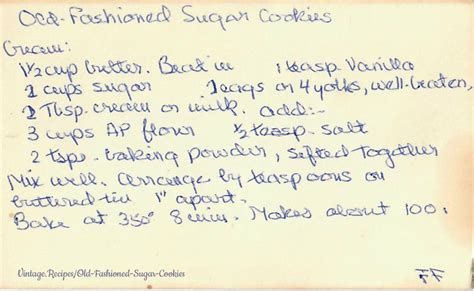 Old-Fashioned Sugar Cookies
Cream:
1 1/2 cup butter. Beat in 1 teasp. Vanilla
2 cups sugar 2 eggs or 4 yolks, well-beaten,
2 Tbsp. cream or milk. Add:-
3 cups AP flour 1/2 teasp. salt
2 tsps. baking powder, sifted together
Mix well. Arrange by teaspoons on
buttered tin 1" apart.
Bake at 350° 8 min. Makes about 100.
Vintage.Recipes/Old-Fashioned-Sugar-Cookies
FF